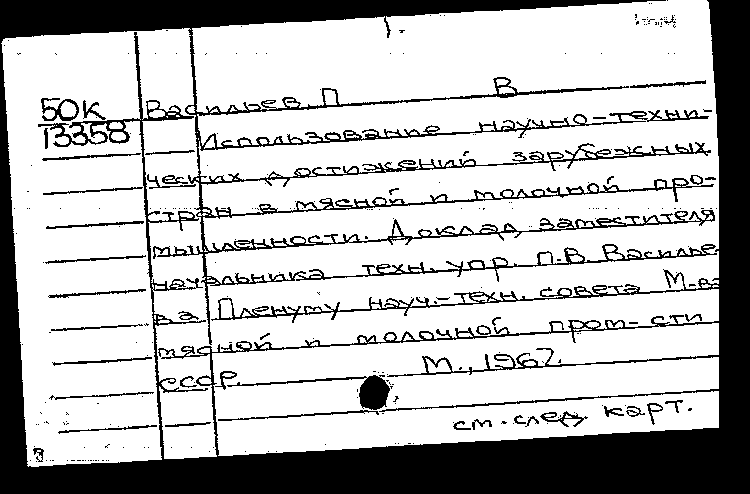 1.
50К Васильев, П В
13358 Использование научно-техни-
ческих достижений зарубежных
стран в мясной и молочной про-
мышленности. Доклад заместителя
начальника техн. упр. П.В. Василье-
ва Пленуму науч.-техн. совета М-ва
мясной и молочной пром-сти
СССР. М., 1967.
см. след. карт.